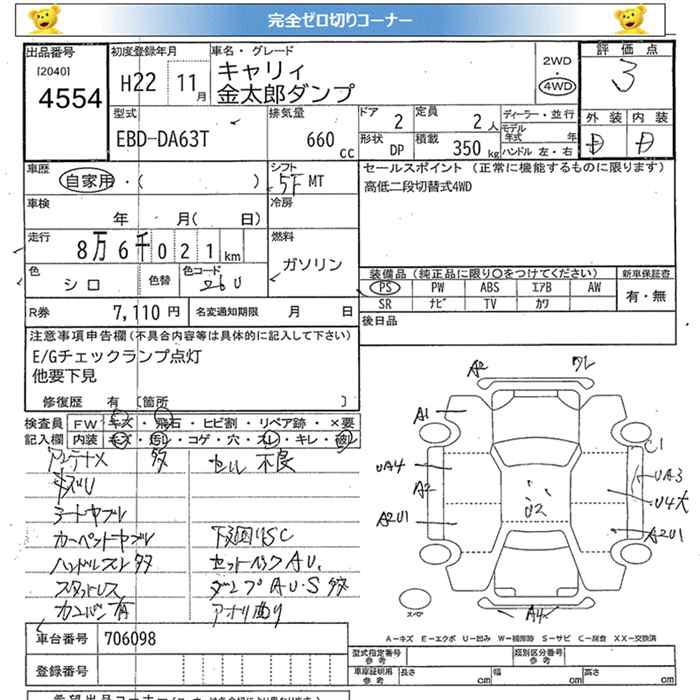 完全ゼロ切りコーナー
出品番号
[2040]
4554
初度登録年月
H22 11月
車名・グレード
キャリィ
金太郎ダンプ
2WD
・
4WD
評価点
3
外装 内装
D D
型式
EBD-DA63T
排気量
660
cc
ドア
2
定員
2人
形状
DP
積載
350
kg
ディーラー・並行
モデル年式 年
ハンドル 左・右
車歴
自家用・( )
シフト
5F MT
車検
年 月( 日)
冷房
走行
8万6千021km
燃料
ガソリン
色
シロ
色替
色コード
26U
R券 7,110円
名変通知期限 月 日
セールスポイント (正常に機能するものに限ります)
高低二段切替式4WD
装備品 (純正品に限り○をつけてください)
新車保証書
PS PW ABS エアB AW
SR ナビ TV カワ
有・無
後日品
注意事項申告欄(不具合内容等は具体的に記入して下さい)
E/Gチェックランプ点灯
他要下見
修復歴 有 〔箇所 〕
検査員記入欄
FW キズ・飛石・ヒビ割・リペア跡・×要
内装 キズ・汚レ・コゲ・穴・スレ・キレ・破レ
多 セル 不良
カーペットヤブレ 下廻りSC
ハンドルスレ 多
スタットレス
カエバン有 アオリ曲り
A2
ワレ
A1
C1
UA4
UA3
A2
U4大
A2U1
U2
A2U1
スペア
A4
A-キズ E-エクボ U-凹み W-補修跡 S-サビ C-腐食 XX-交換済
車台番号 706098
登録番号
型式指定番号
参考
類別区分番号
参考
車庫証明用
参考
長さ cm 幅 cm 高さ cm